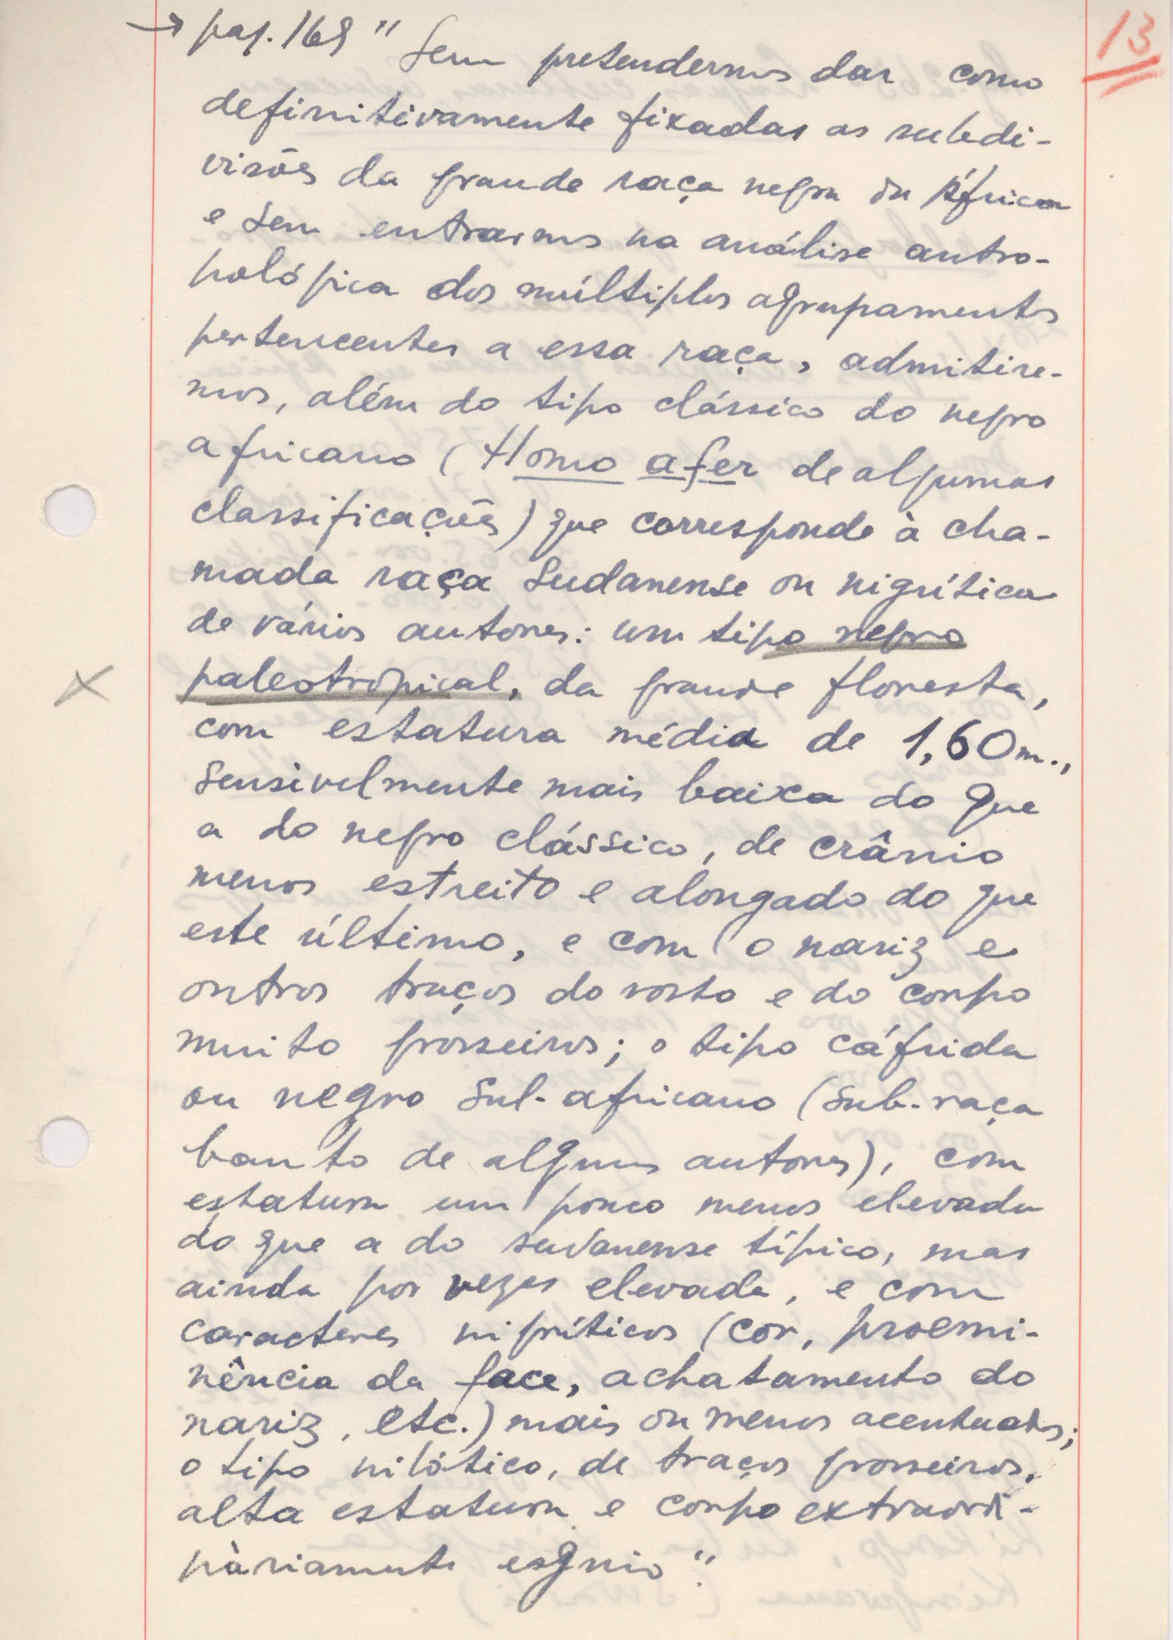 13
→ pag. 169 "Sem pretendermos dar como
definitivamente fixadas as subdi-
visões da grande raça negra da África
e sem entrarmos na análise antro-
pológica dos múltiplos agrupamentos
pertencentes a essa raça, admitire-
mos, além do tipo clássico do negro
africano (Homo afer de algumas
classificações) que corresponde à cha-
mada raça sudanense ou nigrítica
de vários autores: um tipo negro
paleotropical, da grande floresta,
com estatura média de 1,60m.,
sensivelmente mais baixa do que
a do negro clássico, de crânio
menos estreito e alongado do que
este último, e com o nariz e
outros traços do rosto e do corpo
muito grosseiros; o tipo cáfrida
ou negro sul-africano (sub-raça
banto de alguns autores), com
estatura um pouco menos elevada
do que a do sudanense típico, mas
ainda por vezes elevada, e com
caracteres nigríticos (cor, proemi-
nência da face, achatamento do
nariz, etc.) mais ou menos acentuados;
o tipo nilótico, de traços grosseiros,
alta estatura e corpo extraordi-
nàriamente esguio".